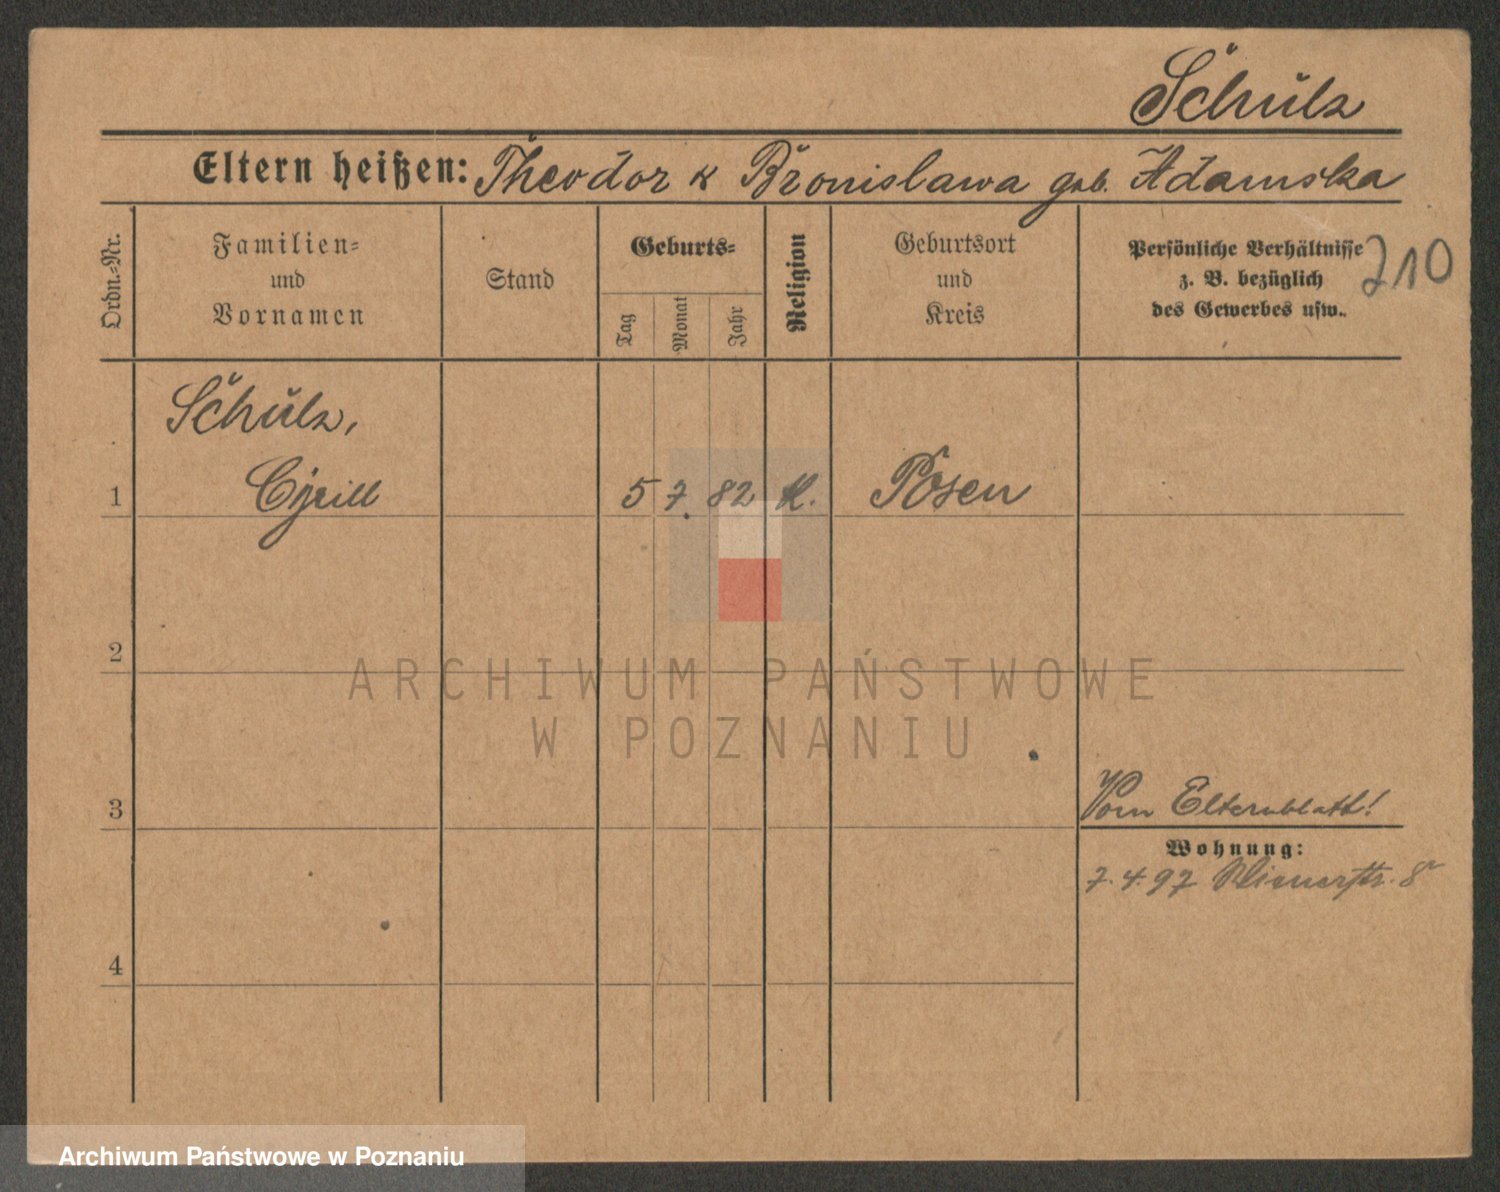 Schulz
Eltern heißen: Theodor & Bronislawa geb. Adamska
Ordn.-Nr.
Familien-
und
Vornamen
Stand
Geburts-
Tag
Monat
Jahr
Religion
Geburtsort
und
Kreis
Persönliche Verhältnisse
z. B. bezüglich
des Gewerbes usw.
210
Schulz,
1 Cyrill 5 7. 82 k. Posen
2
ARCHIWUM PAŃSTWOWE
W POZNANIU
3 Vom Elternblatt!
Wohnung:
7.4.97 Wienerstr. 8
4
Archiwum Państwowe w Poznaniu